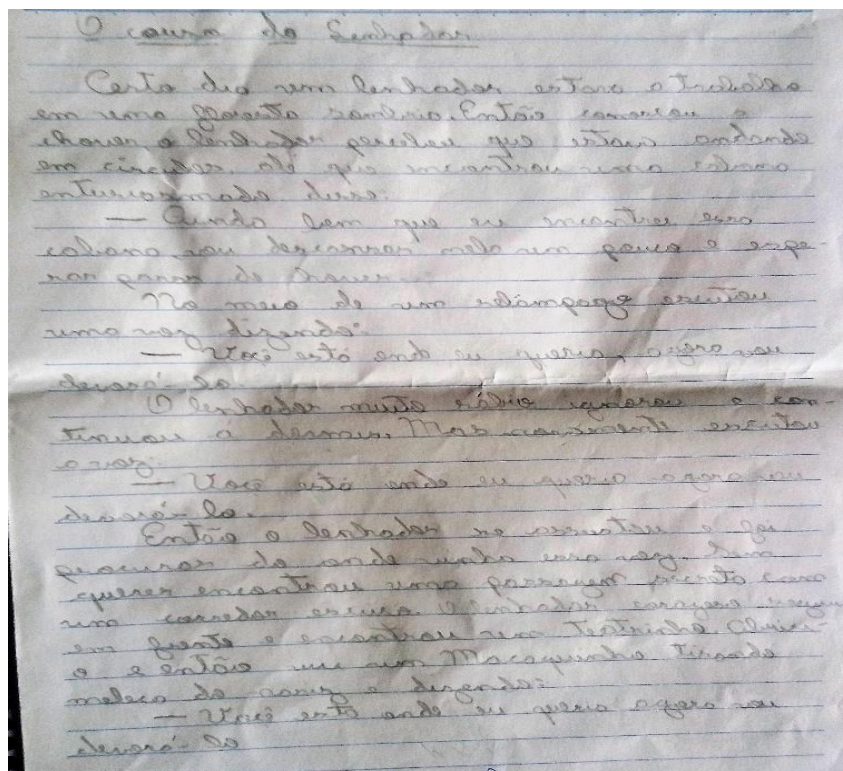 O causo do Lenhador
Certo dia um lenhador estava a trabalho
em uma floresta sombria. Então começou a
chover, o lenhador percebeu que estava andando
em círculos, até que encontrou uma cabana
entusiasmado disse:
— Ainda bem que eu encontrei essa
cabana, vou descansar nela um pouco e espe-
rar parar de chover.
No meio de um relâmpago escutou
uma voz dizendo:
— Você está onde eu queria, agora vou
devorá-lo.
O lenhador muito sábio ignorou e con-
tinuou a dormir. Mas novamente escutou
a voz:
— Você está onde eu queria agora vou
devorá-lo.
Então o lenhador se assustou e foi
procurar de onde vinha essa voz. Sem
querer encontrou uma passagem secreta com
um corredor escuro. O lenhador corajoso seguiu
em frente e encontrou um Teatrinho.
e então viu um Macaquinho tirando
meleca do nariz e dizendo:
— Você está onde eu queria agora vou
devorá-lo